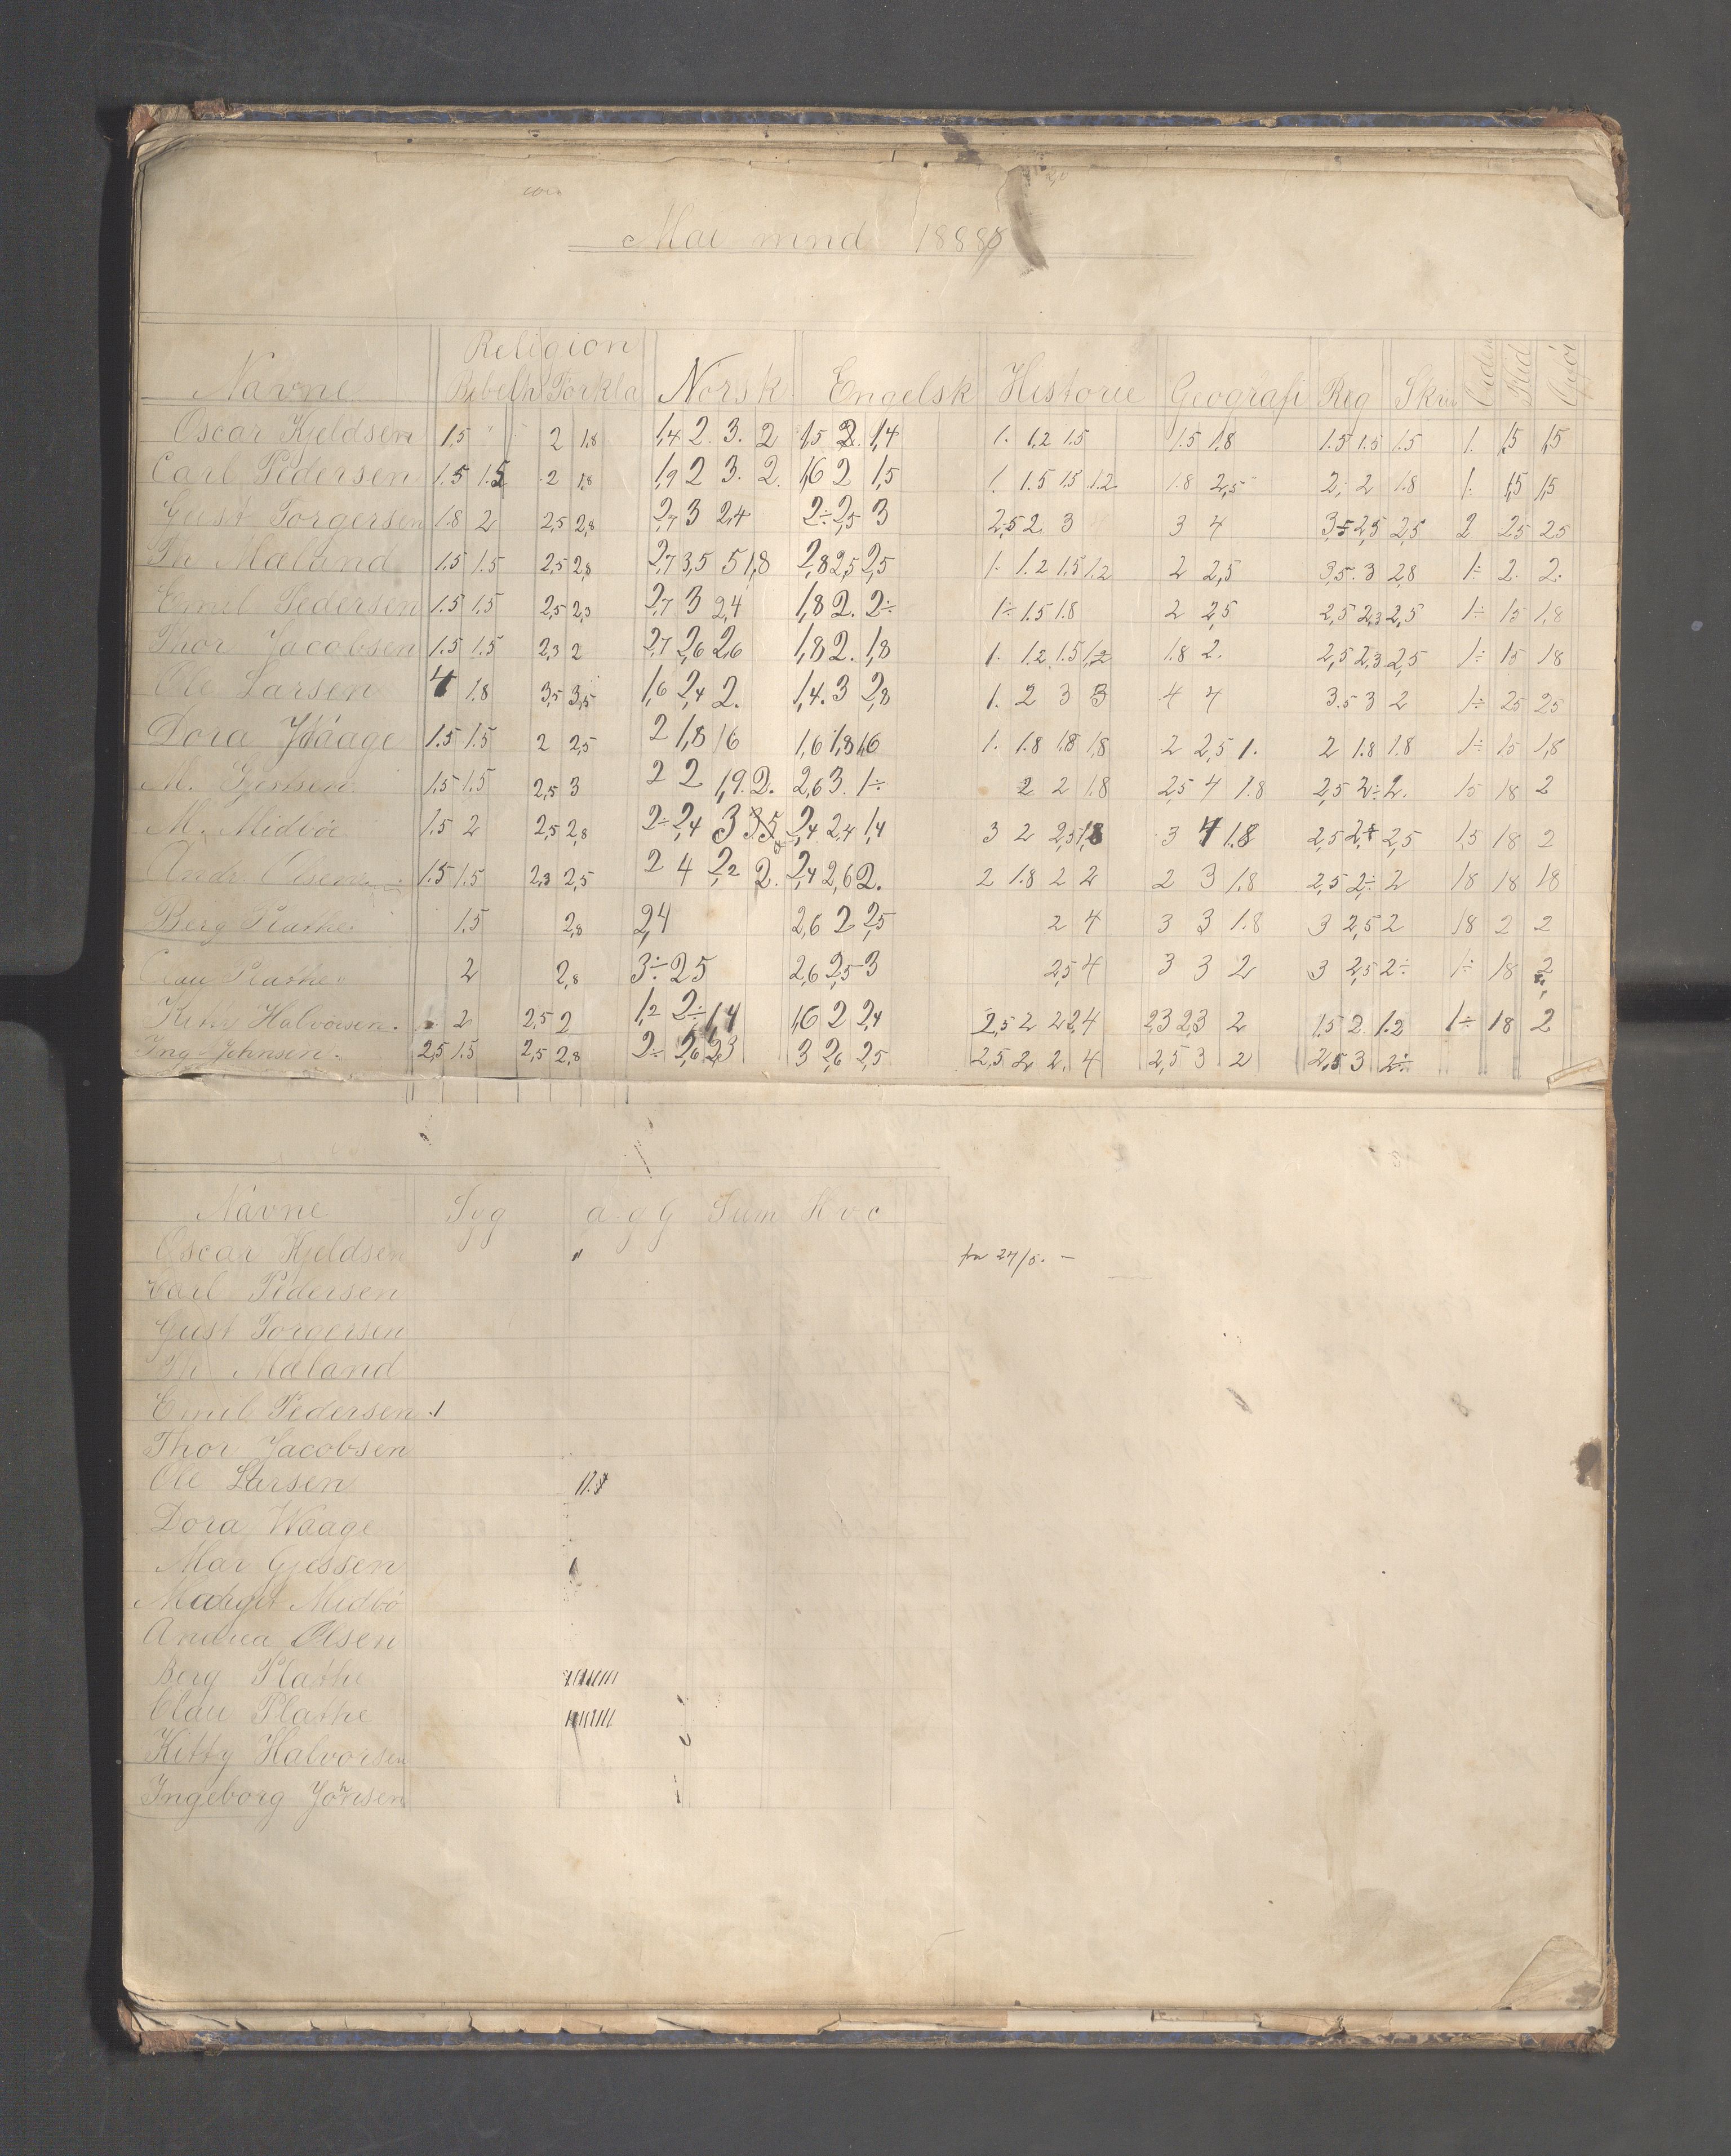 Mai mnd 1888
Religion
Navne Bibelh Forkla Norsk Engelsk Historie Geografi Reg Skriv Orden Flid Opføl
Oscar Kjeldsen 1,5 2 1,8 1,4 2. 3. 2 1,5 2. 1,4 1. 1.2 1.5 1.5 1.8 1.5 1.5 1.5 1. 1,5 1,5
Carl Pedersen 1.5 1.5 2 1,8 1,9 2 3. 2. 1,6 2 1,5 1. 1.5 1.5 1.2 1.8 2,5 2; 2 1.8 1. 1,5 1,5
Gust Torgersen 1.8 2 2,5 2,8 2,7 3 2,4 2÷ 2,5 3 2,5 2. 3 3 4 3,5 2,5 2,5 2 25 25
Th Maland 1.5 1.5 2,5 2,8 2,7 3,5 5 1,8 2,8 2,5 2,5 1. 1.2 1.5 1.2 2 2,5 3,5. 3 2,8 1÷ 2. 2.
Emil Pedersen 1.5 1.5 2,5 2,3 2,7 3 2,4 1,8 2. 2÷ 1÷ 1.5 1.8 2 2,5 2,5 2,3 2,5 1÷ 15 1,8
Thor Jacobsen 1.5 1.5 2,3 2 2,7 2,6 2,6 1,8 2. 1,8 1. 1.2 1.5 1,2 1.8 2. 2,5 2,3 2,5 1÷ 15 18
Ole Larsen 4 1.8 3,5 3,5 1,6 2,4 2. 1,4. 3 2,8 1. 2 3 3 4 4 3.5 3 2 1÷ 25 25
Dora Waage 1.5 1.5 2 2,5 2 1,8 16 1,6 1,8 1,6 1. 1.8 1.8 1,8 2 2,5 1. 2 1.8 1.8 1÷ 15 1,8
M. Gjessen 1,5 1,5 2,5 3 2 2 1,9. 2. 2,6 3. 1÷ 2 2 1.8 2,5 4 1.8 2,5 2÷ 2. 15 18 2
M. Midbö 1.5 2 2,5 2,8 2÷ 2,4 3 3,5 2,4 2,4 1,4 3 2 2,5 1,8 3 4 1.8 2,5 2,4 2,5 15 18 2
Andr. Olsen 1.5 1.5 2,3 2,5 2 4 2,2 2. 2,4 2,6 2. 2 1.8 2 2 2 3 1.8 2,5 2÷ 2 18 18 18
Berg Plathe 1.5 2,8 2,4 2,6 2 2,5 2 4 3 3 1.8 3 2,5 2 18 2 2
Clau Plathe 2 2,8 3÷ 25 2,6 2,5 3 2,5 4 3 3 2 3 2,5 2÷ 1÷ 18 2
Kitty Halvorsen. 2 2,5 2 1,2 2÷ 1,4 1,6 2 2,4 2,5 2 2 2,4 2,3 2,3 2 1.5 2 1.2 1÷ 18 2
Ing Johnsen. 2,5 1.5 2,5 2,8 2÷ 2,6 2,3 3 2,6 2,5 2,5 2 2. 4 2,5 3 2 2,5 3 2÷
Navne Syg a g G Sum H v c
Oscar Kjeldsen fra 24/5. –
Carl Pedersen
Gust Torgersen
Th Maland
Emil Pedersen
Thor Jacobsen
Ole Larsen
Dora Waage
Mar Gjessen
Midbö
Andrea Olsen
Berg Plathe
Clau Plathe
Kitty Halvorsen
Ingeborg Johnsen